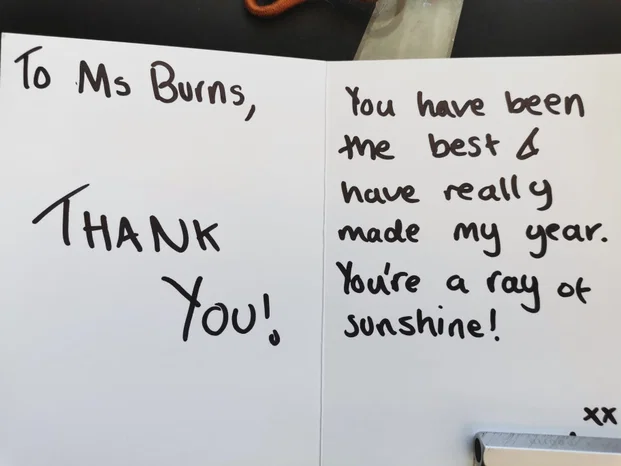 To Ms Burns,
THANK
YOU!
You have been
the best &
have really
made my year.
You're a ray of
sunshine!
xx